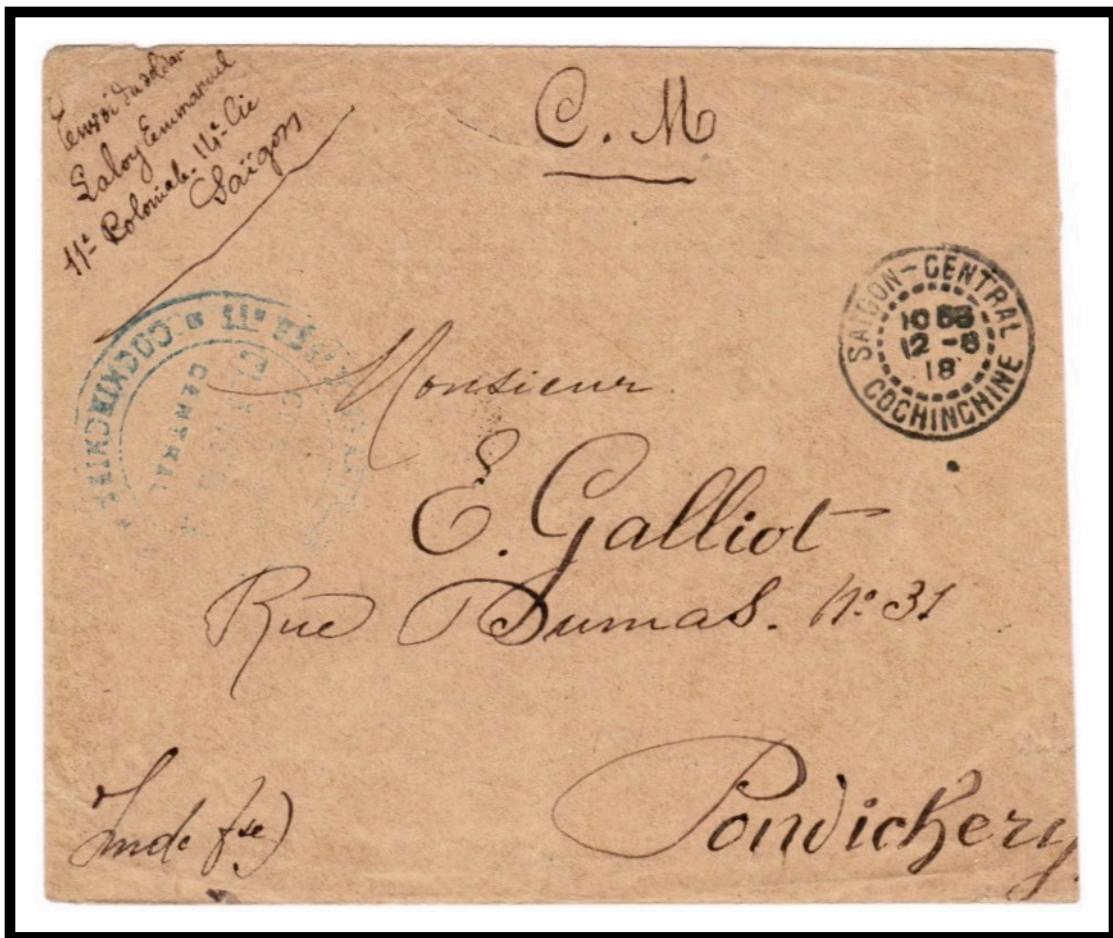 Envoi du soldat
Laloy Emmanuel
11e Coloniale. 14e Cie
Saïgon
C. M
SAIGON-CENTRAL
12-8
18
COCHINCHINE
COCHINCHINE
11e
CENTRAL
Monsieur
E. Galliot
Rue Dumas. No 31
Inde fse)
Pondichery